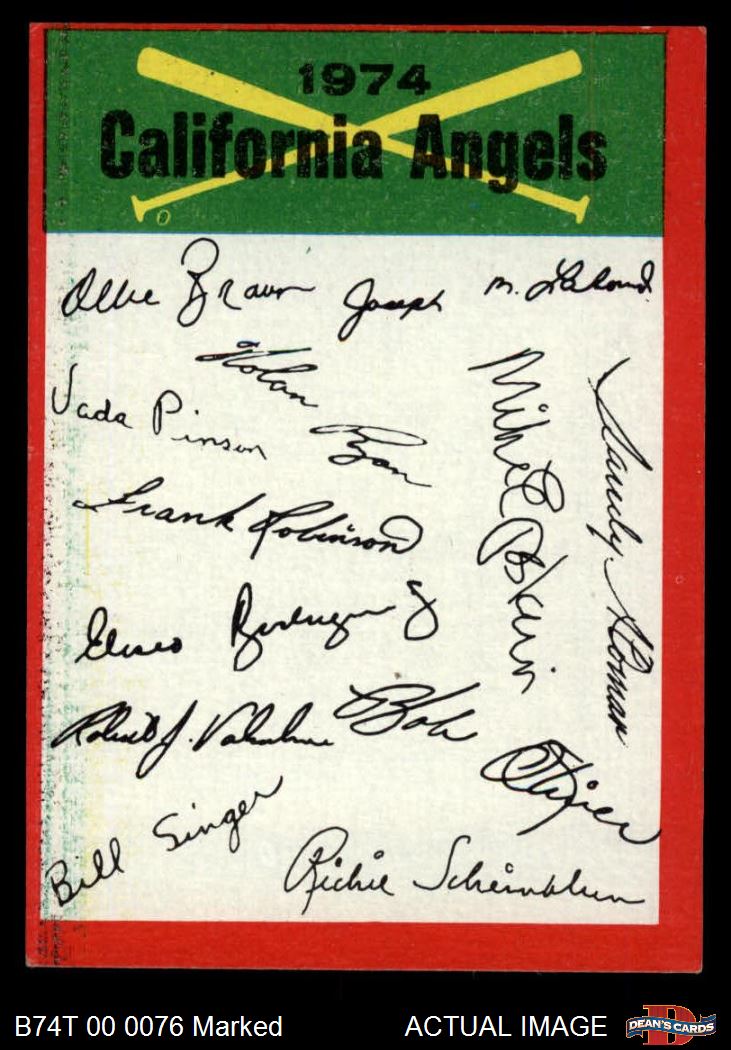 1974
California Angels
Ollie Brown
Joseph M. Lahoud
Nolan Ryan
Vada Pinson
Mike Epstein
Sandy Alomar
Frank Robinson
Eliseo Rodriguez
Robert J. Valentine
Bob Oliver
Bill Singer
Richie Scheinblum
B74T 00 0076 Marked
ACTUAL IMAGE
DEAN'S CARDS